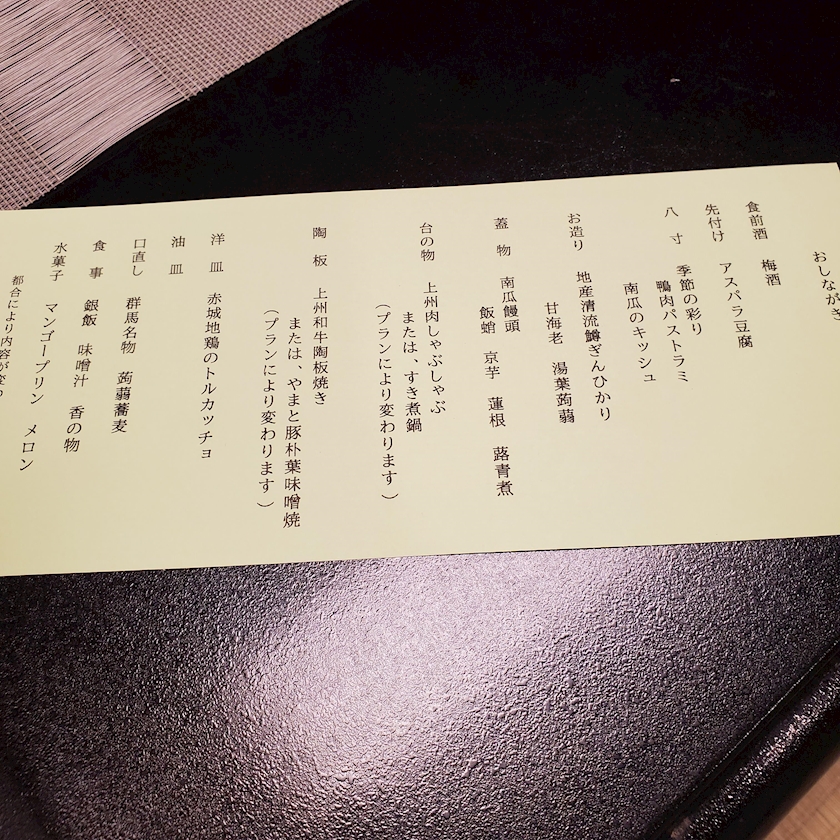 おしながき
食前酒 梅酒
先付け アスパラ豆腐
八寸 季節の彩り
鴨肉パストラミ
南瓜のキッシュ
お造り 地産清流鱒ぎんひかり
甘海老 湯葉蒟蒻
蓋物 南瓜饅頭
飯蛸 京芋 蓮根 蕗青煮
台の物 上州肉しゃぶしゃぶ
または、すき煮鍋
（プランにより変わります）
陶板 上州和牛陶板焼き
または、やまと豚朴葉味噌焼
（プランにより変わります）
洋皿 赤城地鶏のトルカッチョ
油皿
口直し 群馬名物 蒟蒻蕎麦
食事 銀飯 味噌汁 香の物
水菓子 マンゴープリン メロン
都合により内容が変わ